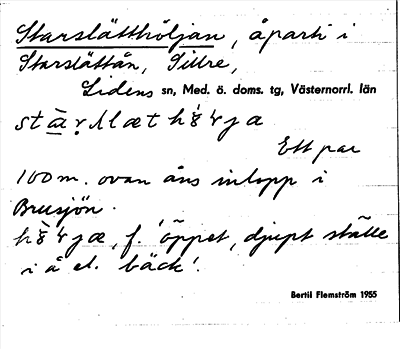 Starslätthöljan, åparti i
Starslåttån, Sillre,
Lidens sn, Med. ö. doms. tg, Västernorrl. län
Ett par
100 m. ovan åns inlopp i
Brusjön.
f. 'öppet, djupt ställe
i å el. bäck'.
Bertil Flemström 1955